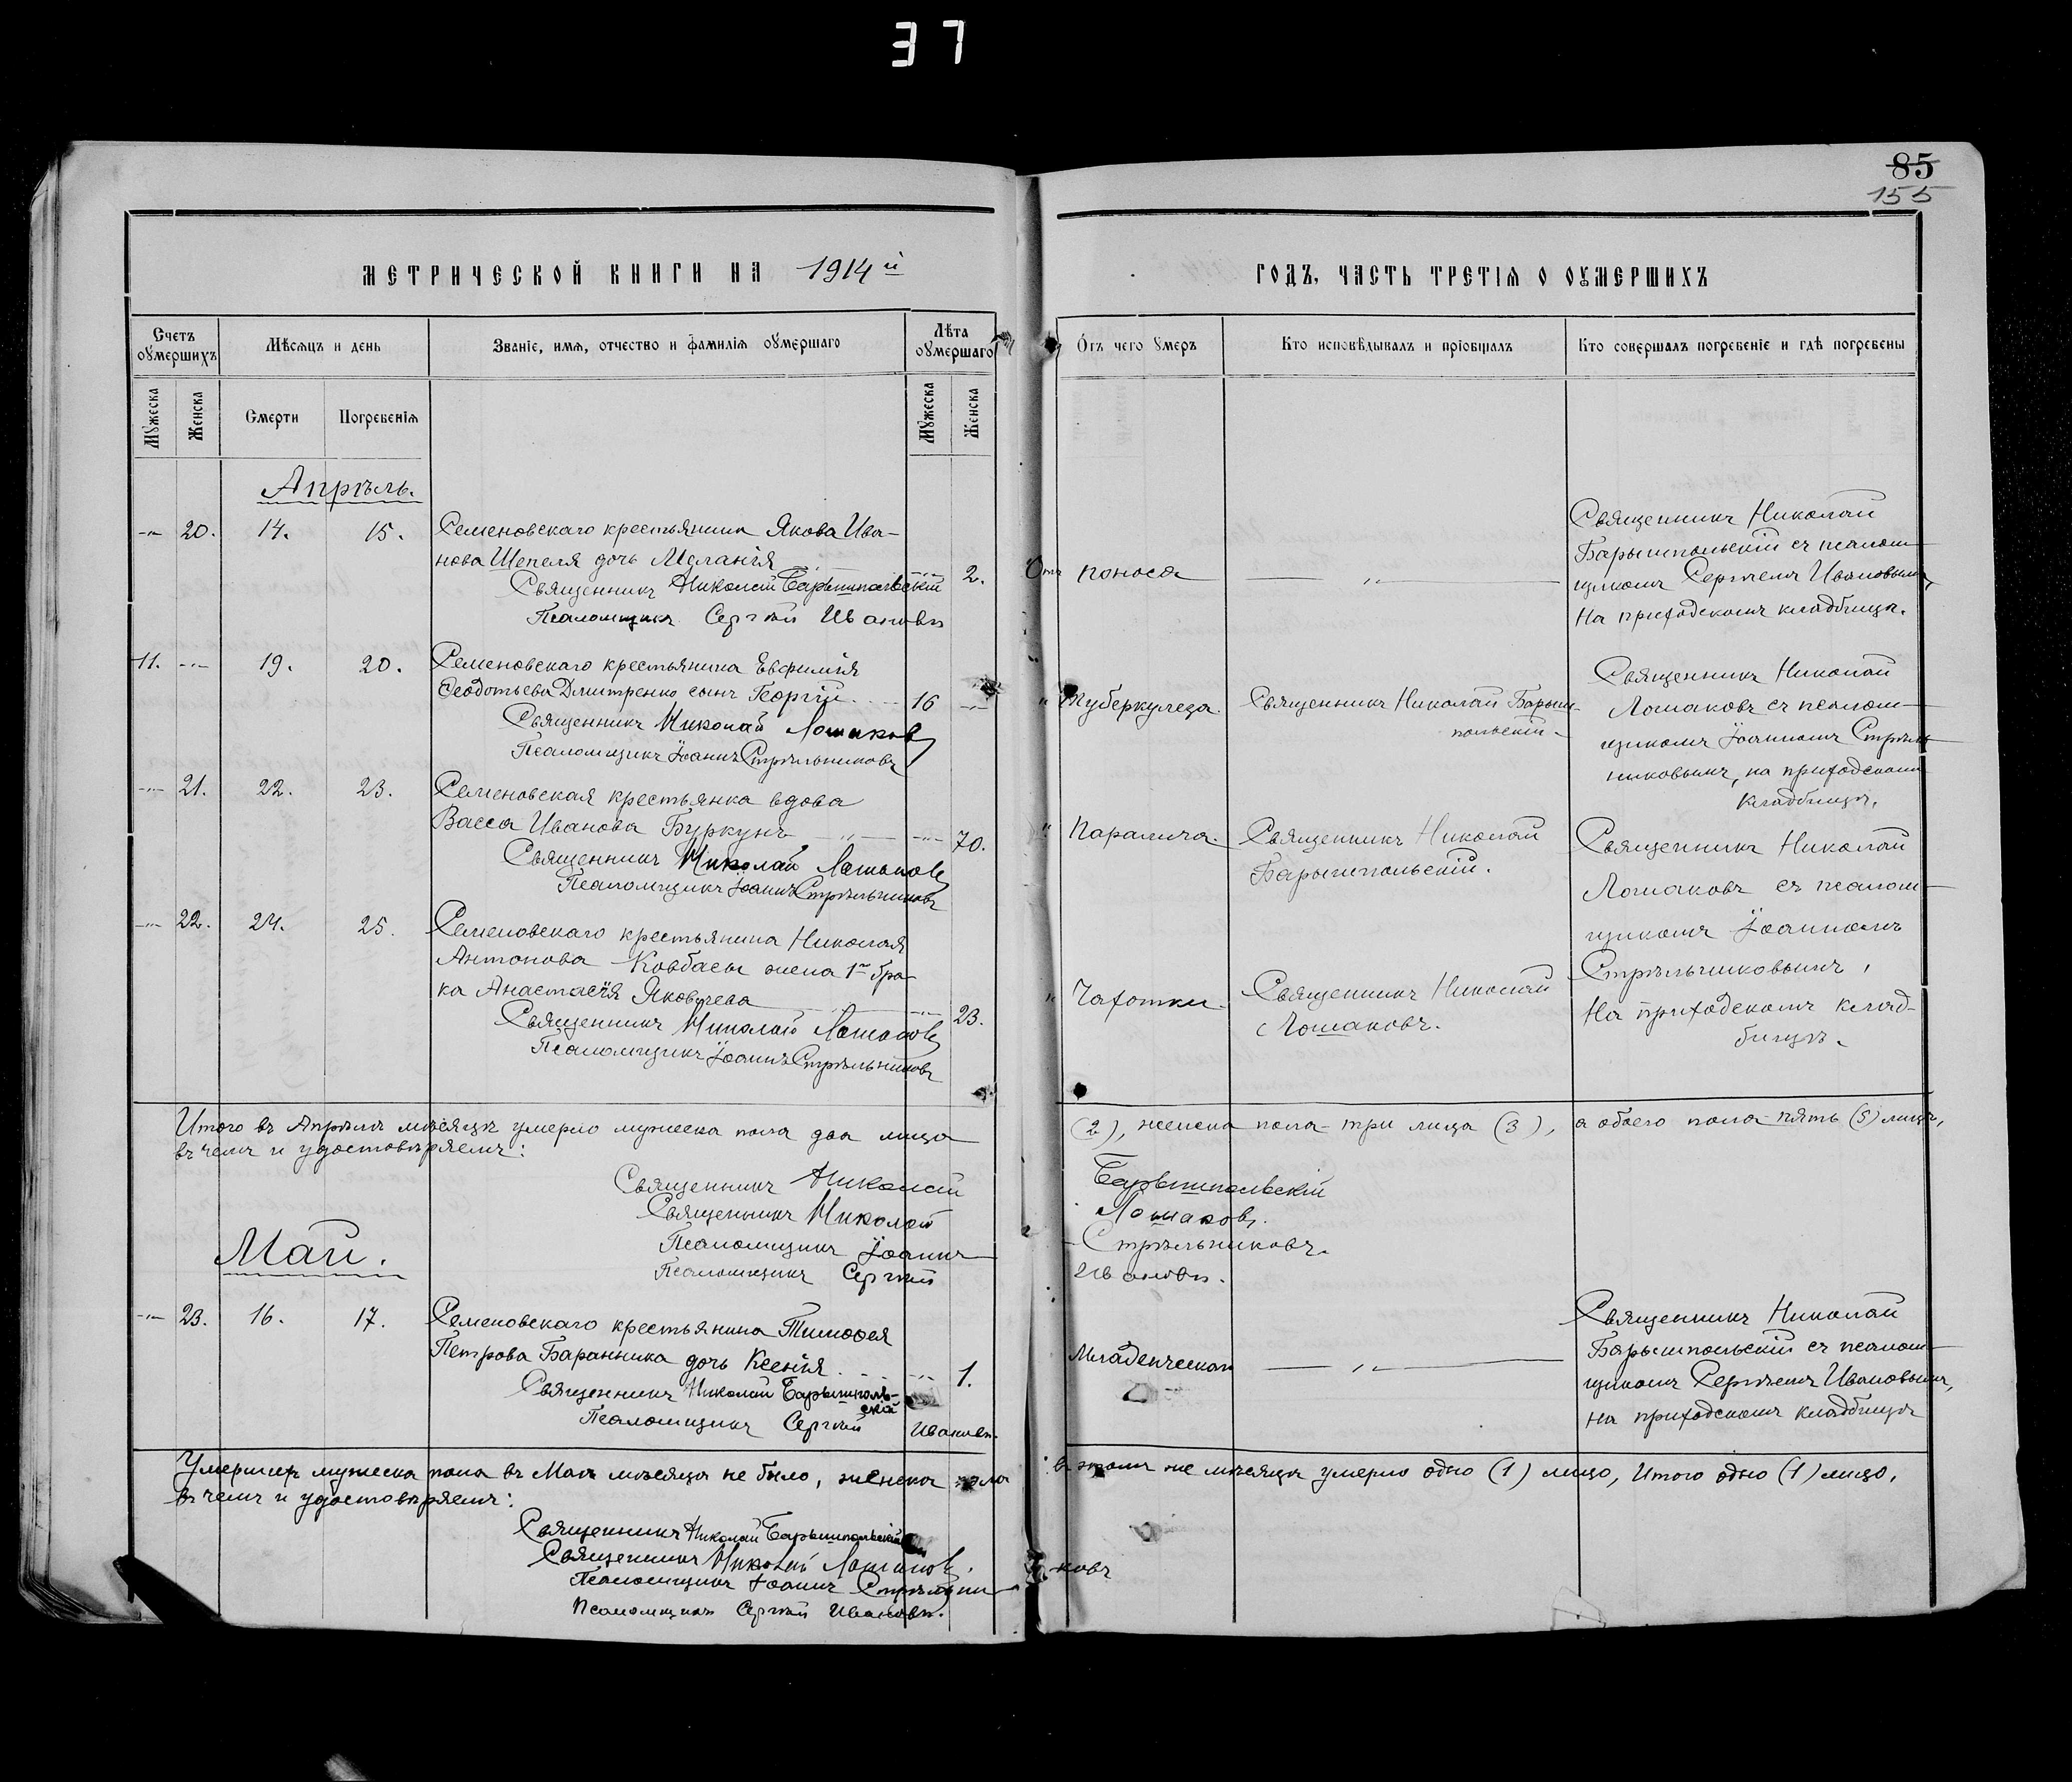 37
85
155
МЕТРИЧЕСКОЙ КНИГИ НА 1914й
ГОДЪ, ЧАСТЬ ТРЕТІѦ О ОУМЕРШИХЪ
Счетъ оумершихъ
Мѣсяцъ и день
Званіе, имя, отчество и фамилія оумершаго
Лѣта оумершаго
Мужеска
Женска
Смерти
Погребенія
Мужеска
Женска
Отъ чего умеръ
Кто исповѣдывалъ и пріобщалъ
Кто совершалъ погребеніе и гдѣ погребены
Апрѣль.
-"- 20. 14. 15. Семеновскаго крестьянина Якова Ива-
нова Шепеля дочь Меланія -"- 2.
Священникъ Николай Барышпольскій
Псаломщикъ Сергѣй Ивановъ
Отъ поноса
-"-
Священникъ Николай
Барышпольскій съ псалом-
щикомъ Сергѣемъ Ивановымъ,
На приходскомъ кладбищѣ.
11. -"- 19. 20. Семеновскаго крестьянина Евфимія
Ѳеодотьева Дмитренко сынъ Георгій 16 -"-
Священникъ Николай Лошаковъ
Псаломщикъ Іоаннъ Стрѣльниковъ
" Туберкулеза.
Священникъ Николай Барыш-
польскій.
Священникъ Николай
Лошаковъ съ псалом-
щикомъ Іоанномъ Стрѣль-
никовымъ, на приходскомъ
кладбищѣ.
-"- 21. 22. 23. Семеновская крестьянка вдова
Васса Иванова Буркунъ -"- -"- 70.
Священникъ Николай Лошаковъ
Псаломщикъ Іоаннъ Стрѣльниковъ
" Паралича.
Священникъ Николай
Барышпольскій.
Священникъ Николай
Лошаковъ съ псалом-
щикомъ Іоанномъ
Стрѣльниковымъ,
На приходскомъ клад-
бищѣ.
-"- 22. 24. 25. Семеновскаго крестьянина Николая
Антонова Ковбасы жена 1го бра-
ка Анастасія Яковлева -"- 23.
Священникъ Николай Лошаковъ
Псаломщикъ Іоаннъ Стрѣльниковъ
" Чахотки.
Священникъ Николай
Лошаковъ.
Итого въ Апрѣлѣ мѣсяцѣ умерло мужеска пола два лица (2), женска пола-три лица (3), а обоего пола-пять (5) лицъ,
въ чемъ и удостовѣряемъ:
Священникъ Николай Барышпольскій
Священникъ Николай Лошаковъ.
Псаломщикъ Іоаннъ Стрѣльниковъ.
Псаломщикъ Сергѣй Ивановъ.
Май.
-"- 23. 16. 17. Семеновскаго крестьянина Тимоѳея
Петрова Баранника дочь Ксенія -"- 1.
Священникъ Николай Барышполь-
скій
Псаломщикъ Сергѣй Ивановъ.
Младенческой
-"-
Священникъ Николай
Барышпольскій съ псалом-
щикомъ Сергѣемъ Ивановымъ,
на приходскомъ кладбищѣ
Умершихъ мужеска пола въ Маѣ мѣсяцѣ не было, женска пола въ этомъ же мѣсяцѣ умерло одно (1) лицо, Итого одно (1) лицо,
въ чемъ и удостовѣряемъ:
Священникъ Николай Барышпольскій
Священникъ Николай Лошаковъ.
Псаломщикъ Іоаннъ Стрѣльниковъ
Псаломщикъ Сергѣй Ивановъ.